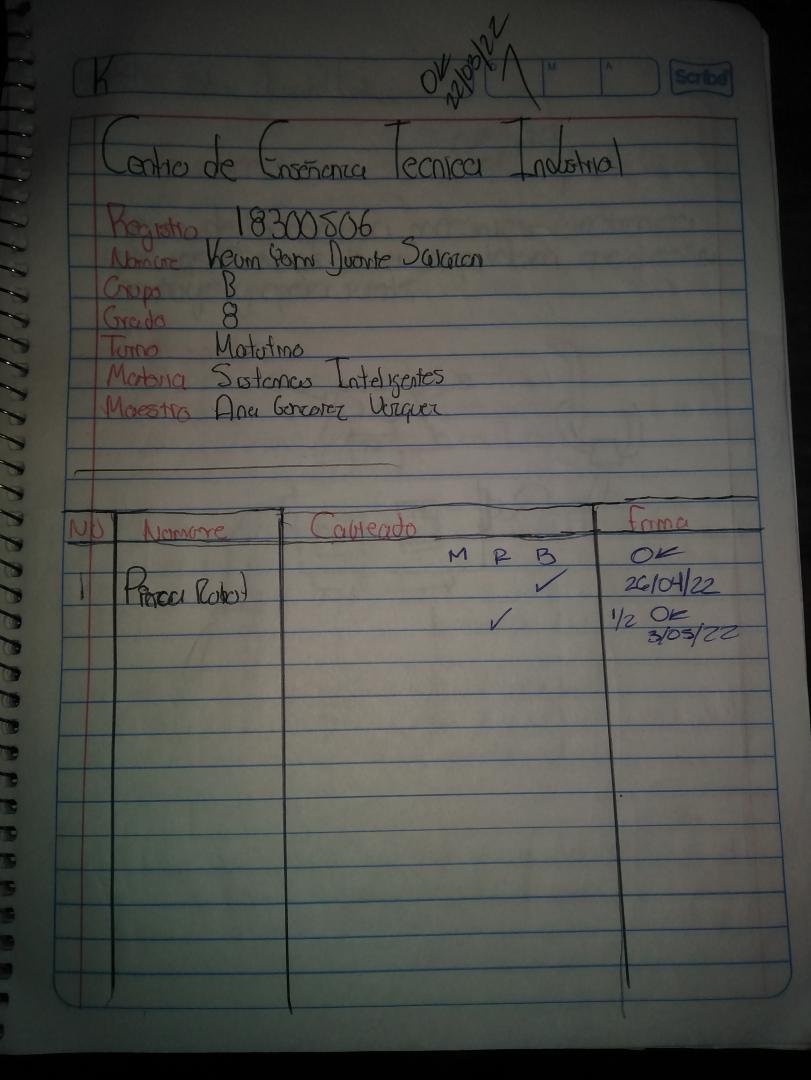 K
OK
22/03/22
M A
Scribe
Centro de Enseñanza Tecnica Industrial
Registro 18300506
Nombre Kevin Duarte
Grupo B
Grado 8
Turno Matutino
Materia Sistemas Inteligentes
Maestro Ana Gonzalez
NO Nombre Cableado Firma
M R B OK
1 Pinza Robot ✓ 26/04/22
✓ 1/2 OK
3/05/22